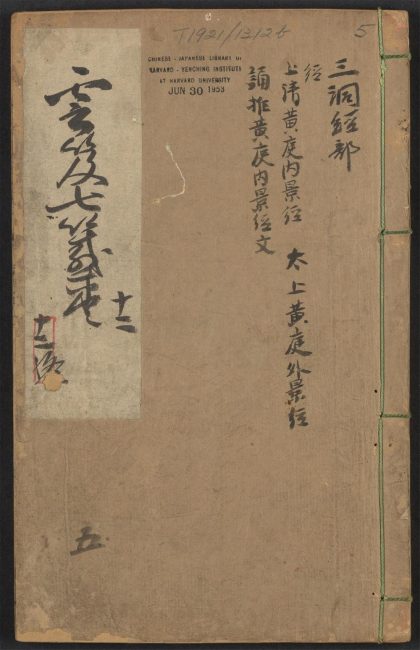 T1921/1312b
5
CHINESE - JAPANESE LIBRARY OF
HARVARD - YENCHING INSTITUTE
AT HARVARD UNIVERSITY
JUN 30 1953
三洞經部
經
上清黃庭內景經 太上黃庭外景經
誦推黃庭內景經文
雲笈七籤
十二
十二
五